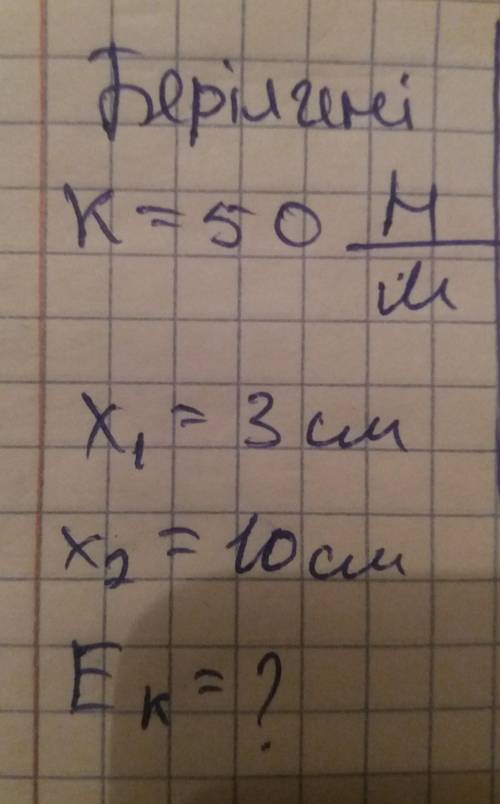 Берілгені
K = 50 Н/м
x₁ = 3 см
x₂ = 10 см
Eк = ?